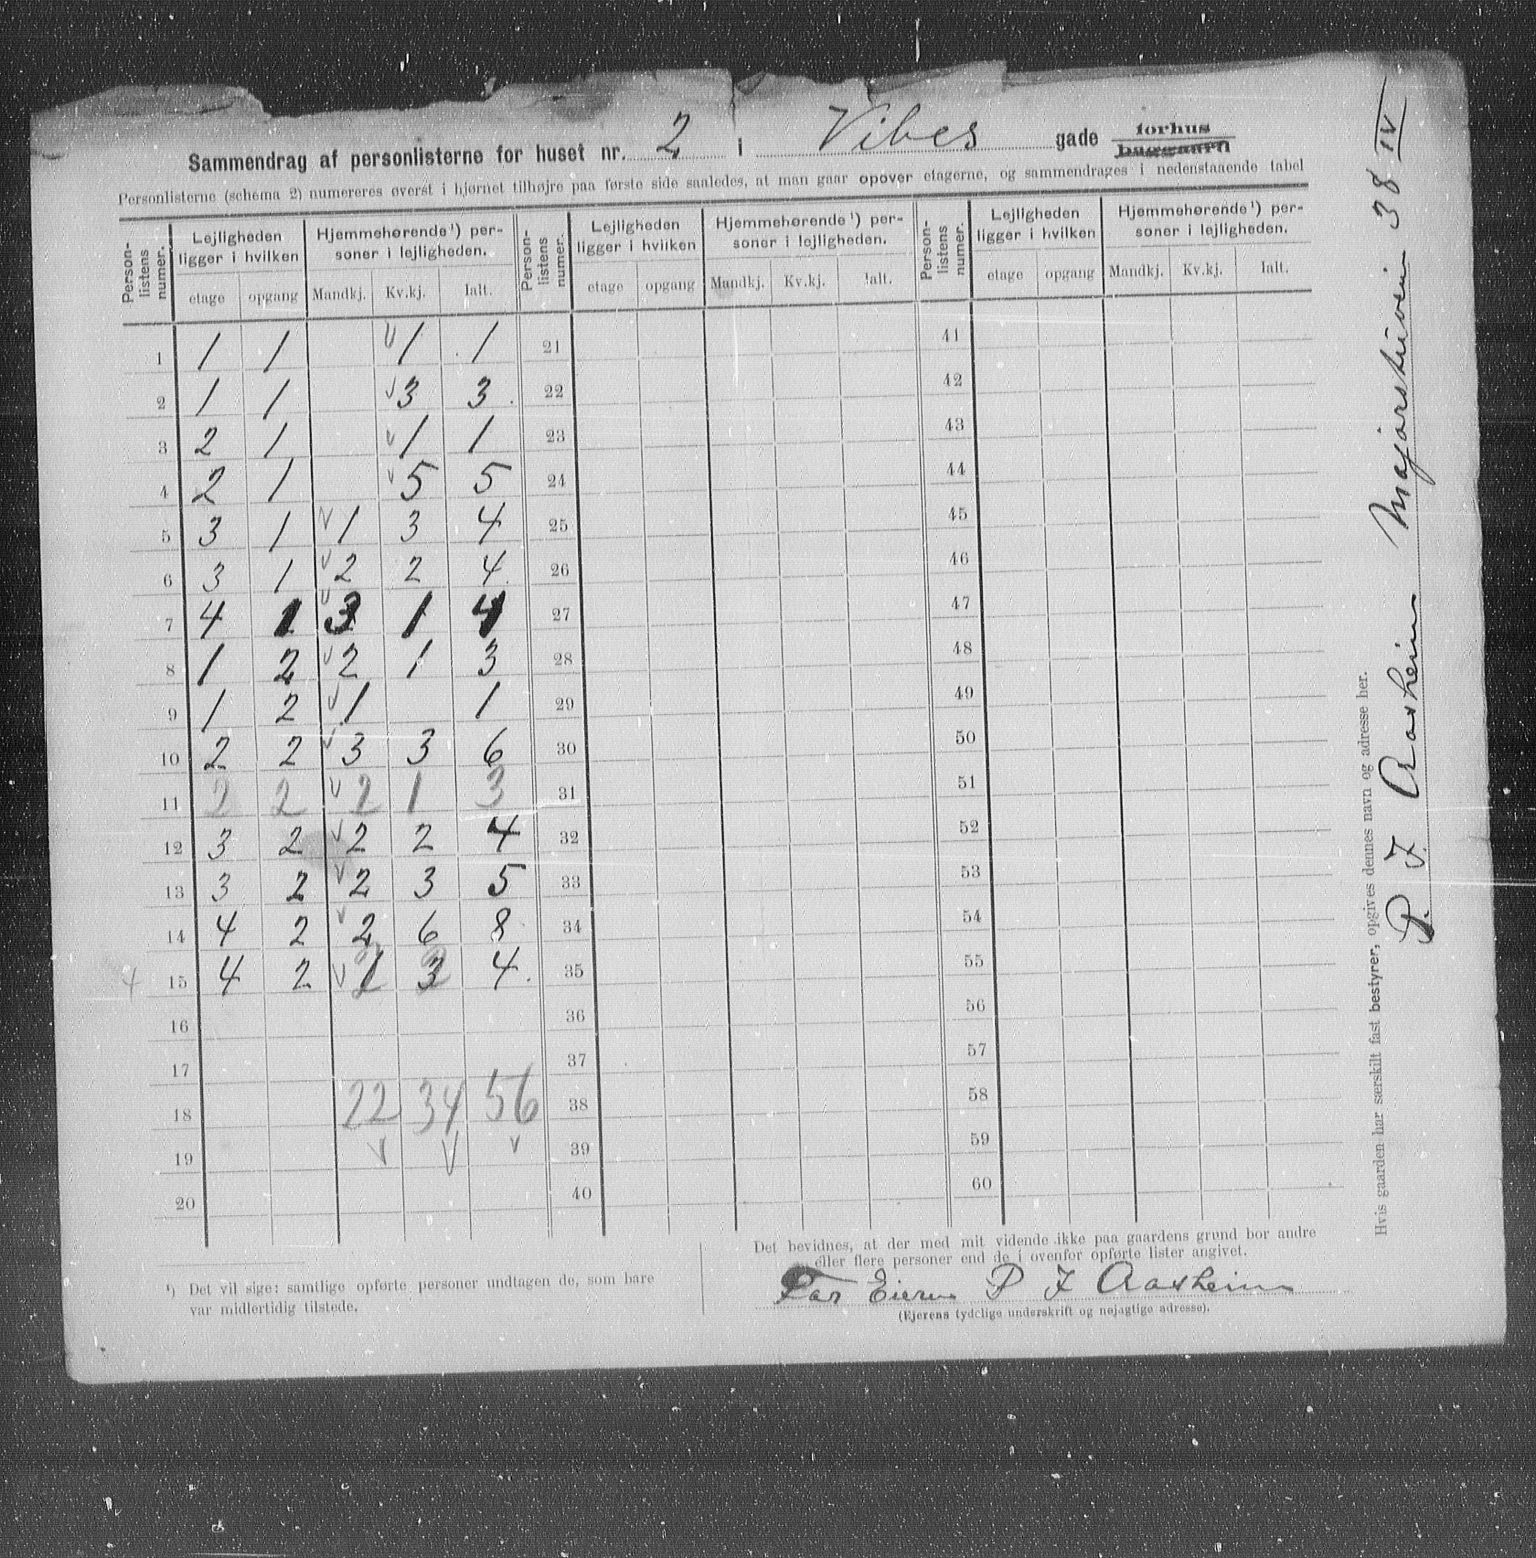 Sammendrag af personlisterne for huset nr. 2 i Vibes gade forhus baggaard
Personlisterne (schema 2) numereres øverst i hjørnet tilhøjre paa første side saaledes, at man gaar opover etagerne, og sammendrages i nedenstaaende tabel
Person-listens numer. Lejligheden ligger i hvilken Hjemmehørende ¹) personer i lejligheden. Person-listens numer. Lejligheden ligger i hvilken Hjemmehørende ¹) personer i lejligheden. Person-listens numer. Lejligheden ligger i hvilken Hjemmehørende ¹) personer i lejligheden.
etage opgang Mandkj. Kv.kj. Ialt. etage opgang Mandkj. Kv.kj. Ialt. etage opgang Mandkj. Kv.kj. Ialt.
1 1 1 1 1 21 41
2 1 1 3 3 22 42
3 2 1 1 1 23 43
4 2 1 5 5 24 44
5 3 1 1 3 4 25 45
6 3 1 2 2 4 26 46
7 4 1 3 1 4 27 47
8 1 2 2 1 3 28 48
9 1 2 1 1 29 49
10 2 2 3 3 6 30 50
11 2 2 2 1 3 31 51
12 3 2 2 2 4 32 52
13 3 2 2 3 5 33 53
14 4 2 2 6 8 34 54
4 15 4 2 1 2 3 2 4 35 55
16 36 56
17 37 57
18 22 34 56 38 58
19 39 59
20 40 60
¹) Det vil sige: samtlige opførte personer undtagen de, som bare
var midlertidig tilstede.
Det bevidnes, at der med mit vidende ikke paa gaardens grund bor andre
eller flere personer end de i ovenfor opførte lister angivet.
For Eieren P J Aasheim
(Ejerens tydelige underskrift og nøjagtige adresse).
Hvis gaarden har særskilt fast bestyrer, opgives dennes navn og adresse her.
P. J. Aasheim Majorstuveien 38 IV